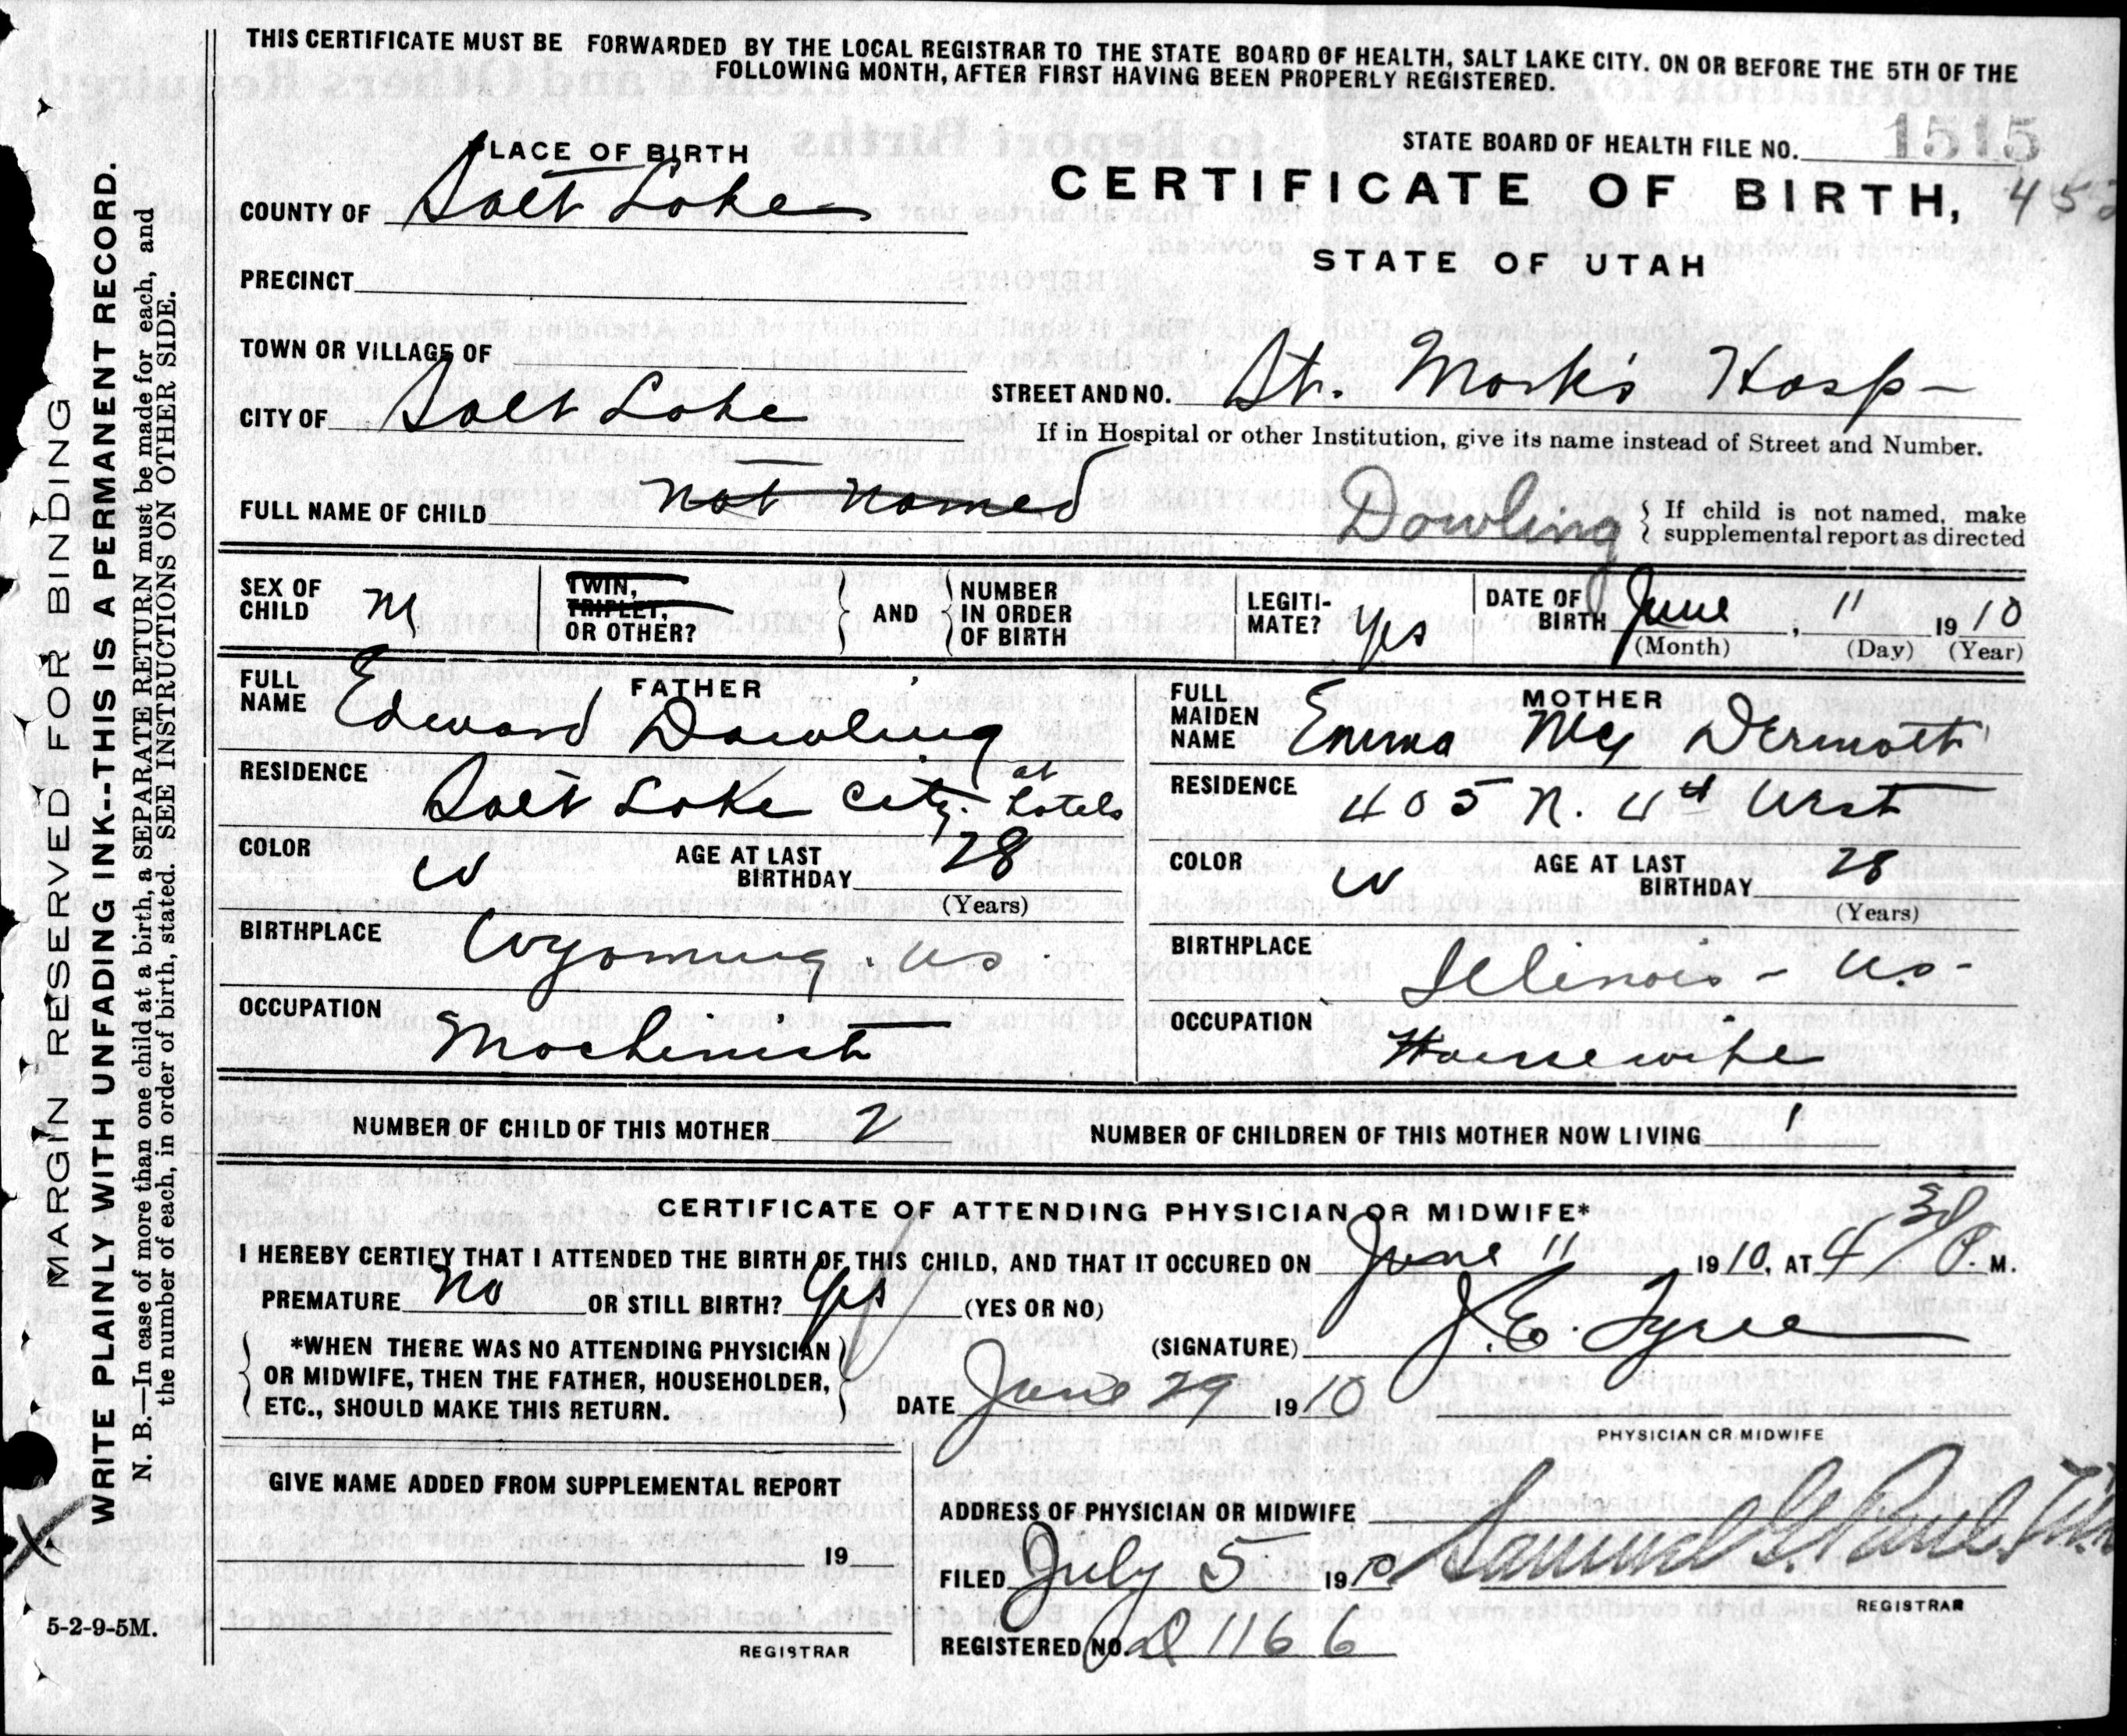 THIS CERTIFICATE MUST BE FORWARDED BY THE LOCAL REGISTRAR TO THE STATE BOARD OF HEALTH, SALT LAKE CITY. ON OR BEFORE THE 5TH OF THE
FOLLOWING MONTH, AFTER FIRST HAVING BEEN PROPERLY REGISTERED.
MARGIN RESERVED FOR BINDING
WRITE PLAINLY WITH UNFADING INK--THIS IS A PERMANENT RECORD.
N. B.—In case of more than one child at a birth, a SEPARATE RETURN must be made for each, and
the number of each, in order of birth, stated. SEE INSTRUCTIONS ON OTHER SIDE.
PLACE OF BIRTH
STATE BOARD OF HEALTH FILE NO. 1515
CERTIFICATE OF BIRTH, 452
STATE OF UTAH
COUNTY OF Salt Lake
PRECINCT
TOWN OR VILLAGE OF
CITY OF Salt Lake
STREET AND NO. St. Mark's Hosp-
If in Hospital or other Institution, give its name instead of Street and Number.
FULL NAME OF CHILD not named Dowling { If child is not named, make
supplemental report as directed
SEX OF CHILD M
TWIN,
TRIPLET,
OR OTHER?
} AND { NUMBER
IN ORDER
OF BIRTH
LEGITI-
MATE? Yes
DATE OF
BIRTH June, 11 1910
(Month) (Day) (Year)
FATHER
FULL NAME Edward Dowling
RESIDENCE Salt Lake City. at hotels
COLOR W AGE AT LAST BIRTHDAY 28
(Years)
BIRTHPLACE Wyoming. US.
OCCUPATION Machinist
MOTHER
FULL MAIDEN NAME Emma Mc Dermott
RESIDENCE 405 N. 4th West
COLOR W AGE AT LAST BIRTHDAY 28
(Years)
BIRTHPLACE Illinois - US-
OCCUPATION Housewife
NUMBER OF CHILD OF THIS MOTHER 2 NUMBER OF CHILDREN OF THIS MOTHER NOW LIVING 1
CERTIFICATE OF ATTENDING PHYSICIAN OR MIDWIFE*
I HEREBY CERTIFY THAT I ATTENDED THE BIRTH OF THIS CHILD, AND THAT IT OCCURED ON June 11 1910, AT 4 30 P. M.
PREMATURE No OR STILL BIRTH? Yes (YES OR NO)
*WHEN THERE WAS NO ATTENDING PHYSICIAN
OR MIDWIFE, THEN THE FATHER, HOUSEHOLDER,
ETC., SHOULD MAKE THIS RETURN.
(SIGNATURE) J. E. Tyree
DATE June 29 1910
PHYSICIAN OR MIDWIFE
GIVE NAME ADDED FROM SUPPLEMENTAL REPORT
19
REGISTRAR
ADDRESS OF PHYSICIAN OR MIDWIFE
FILED July 5 1910 Samuel G. Paul.
REGISTRAR
REGISTERED NO. 1166
5-2-9-5M.